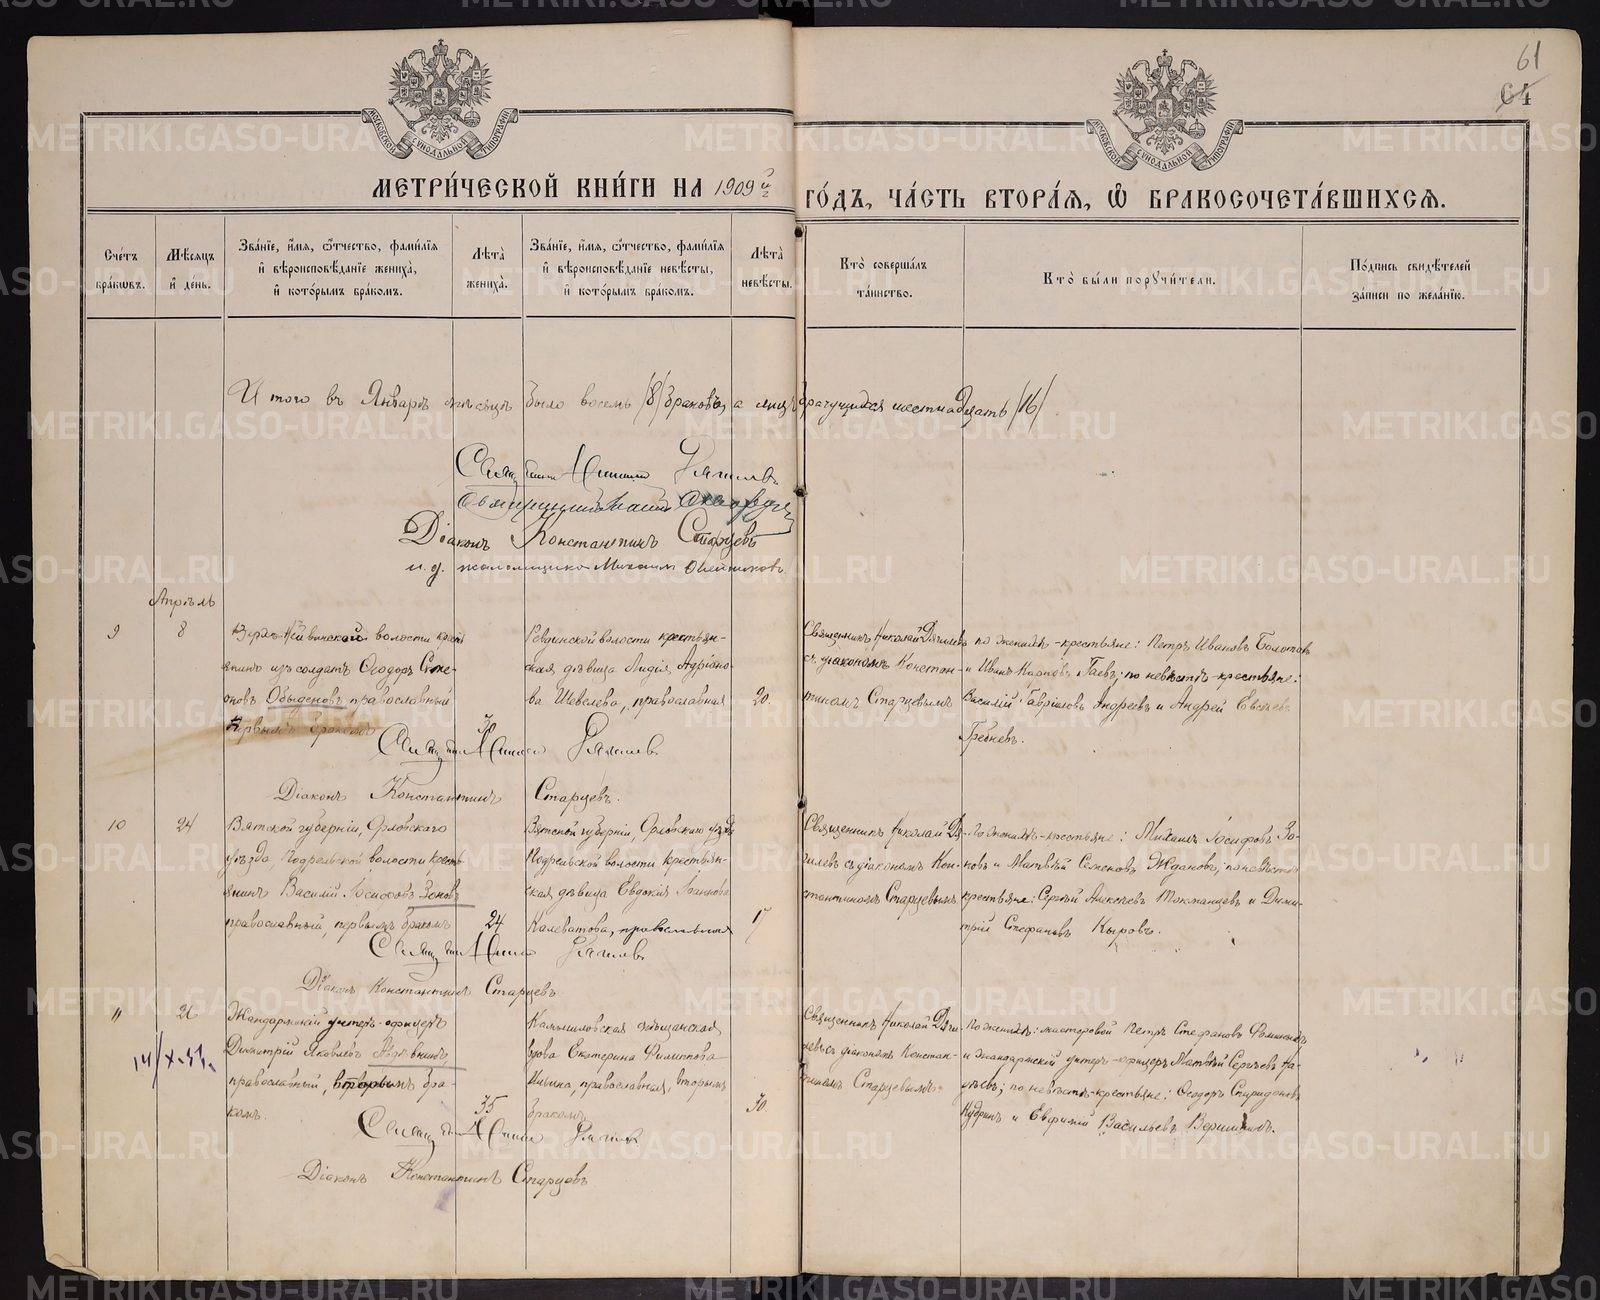 61
64
МОСКОВСКОЙ СѴНОДАЛЬНОЙ ТИПОГРАФІИ
МОСКОВСКОЙ СѴНОДАЛЬНОЙ ТИПОГРАФІИ
МЕТРИ́ЧЕСКОЙ КНИ́ГИ НА 1909й
ГО́ДЪ, ЧА́СТЬ ВТОРА́Я, Ѽ БРАКОСОЧЕТА́ВШИХСЯ.
Сче́тъ бра́кѡвъ.
Мѣ́сяцъ и҆ де́нь.
Зва́нїе, и҆́мя, ѻ҆́тчество, фамі́лїя и҆ вѣроисповѣ́данїе жениха̀, и҆ кото́рымъ бра́комъ.
Лѣ́та жениха̀.
Зва́нїе, и҆́мя, ѻ҆́тчество, фамі́лїя и҆ вѣроисповѣ́данїе невѣ́сты, и҆ кото́рымъ бра́комъ.
Лѣ́та невѣ́сты.
Кто̀ соверша́лъ та́инство.
Кто̀ бы́ли порꙋчи́тели.
По́дпись свидѣ́телей за́писи по жела́нїю.
Итого въ Январѣ мѣсяцѣ было восемь /8/ браковъ, а лицъ брачущихся шестнадцать /16/
Свящ Николай Дягилевъ
Священникъ
Діаконъ Константинъ Старцевъ
и. д. псаломщика Михаилъ Олейниковъ
Апрѣль
9
8
Верхъ-Нейвинской волости крест-
янинъ изъ солдатъ Ѳеодоръ Симе-
оновъ Обыденовъ, православный,
первымъ бракомъ
30
Ревдинской волости крестьян-
ская дѣвица Лидія Адріано-
ва Шевелева, православная
20.
Священникъ Николай Дягилевъ
съ діакономъ Констан-
тиномъ Старцевымъ
по женихѣ - крестьяне: Петръ Ивановъ Болотовъ
и Иванъ Карповъ Гаевъ; по невѣстѣ - крестьяне:
Василій Гавріиловъ Андреевъ и Андрей Евсѣевъ
Гребневъ.
Свящ Николай Дягилевъ
Діаконъ Константинъ Старцевъ.
10
24
Вятской губерніи, Орловскаго
уѣзда, Подрельской волости кресть-
янинъ Василій Іосифовъ Зоновъ
православный, первымъ бракомъ
24
Вятской губерніи, Орловскаго уѣзда
Подрельской волости крестьян-
ская дѣвица Евдокія Іоаннова
Калеватова, православная
17
Священникъ Николай Дя-
гилевъ съ діакономъ Кон-
стантиномъ Старцевымъ
По женихѣ - крестьяне: Михаилъ Іосифовъ Зо-
новъ и Матвѣй Семеновъ Ждановъ; по невѣстѣ
крестьяне: Сергѣй Алексѣевъ Токманцевъ и Дими-
трій Стефановъ Кыровъ.
Свящ Николай Дягилевъ
Діаконъ Константинъ Старцевъ
11
26
Жандармскій унтеръ-офицеръ
Димитрій Яковлевъ
православный, вторымъ бра-
комъ.
35
Камышловская мѣщанская
вдова Екатерина Филиппова
Ильина, православная, вторымъ
бракомъ
30
Священникъ Николай Дяги-
левъ съ діакономъ Констан-
тиномъ Старцевымъ
По женихѣ: мастеровой Петръ Стефановъ
и жандармскій унтеръ-офицеръ Матвѣй Сергѣевъ
по невѣстѣ - крестьяне: Ѳеодоръ Спиридоновъ
Кудринъ и Евфимій Васильевъ
Свящ Николай Дягилевъ
Діаконъ Константинъ Старцевъ